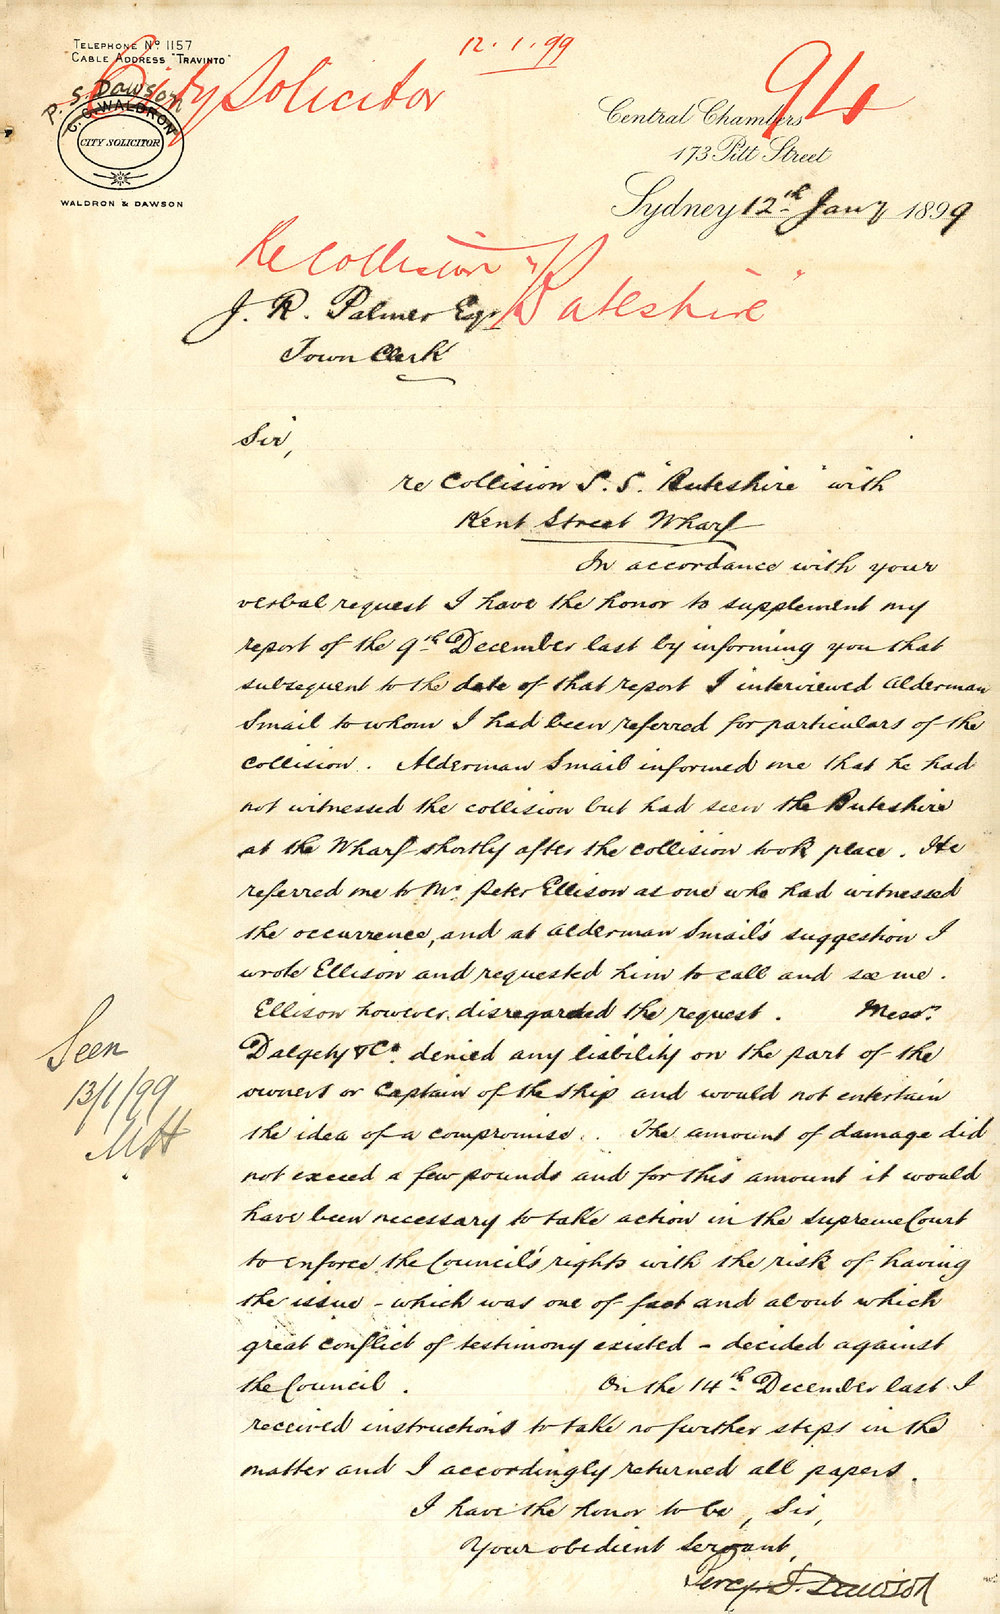 TELEPHONE No 1157
CABLE ADDRESS "TRAVINTO"
City Solicitor
12.1.99
94
P. S. Dawson
C. G. WALDRON
CITY SOLICITOR
WALDRON & DAWSON
Central Chambers
173 Pitt Street
Sydney 12th Jany 1899
Re Collision "Buteshire"
J. R. Palmer Esqr
Town Clerk
Sir,
re Collision S.S. "Buteshire" with
Kent Street Wharf
In accordance with your
verbal request I have the honor to supplement my
report of the 9th December last by informing you that
subsequent to the date of that report I interviewed Alderman
Smail to whom I had been referred for particulars of the
collision. Alderman Smail informed me that he had
not witnessed the collision but had seen the Buteshire
at the Wharf shortly after the collision took place. He
referred me to Mr. Peter Ellison as one who had witnessed
the occurrence, and at Alderman Smail's suggestion I
wrote Ellison and requested him to call and see me.
Ellison however disregarded the request. Messrs
Dalgety & Co. denied any liability on the part of the
owners or Captain of the ship and would not entertain
the idea of a compromise. The amount of damage did
not exceed a few pounds and for this amount it would
have been necessary to take action in the Supreme Court
to enforce the Council's rights with the risk of having
the issue - which was one of fact and about which
great conflict of testimony existed - decided against
the Council. On the 14th December last I
received instructions to take no further steps in the
matter and I accordingly returned all papers.
I have the honor to be, Sir,
Your obedient servant,
Percy S. Dawson
Seen
13/1/99